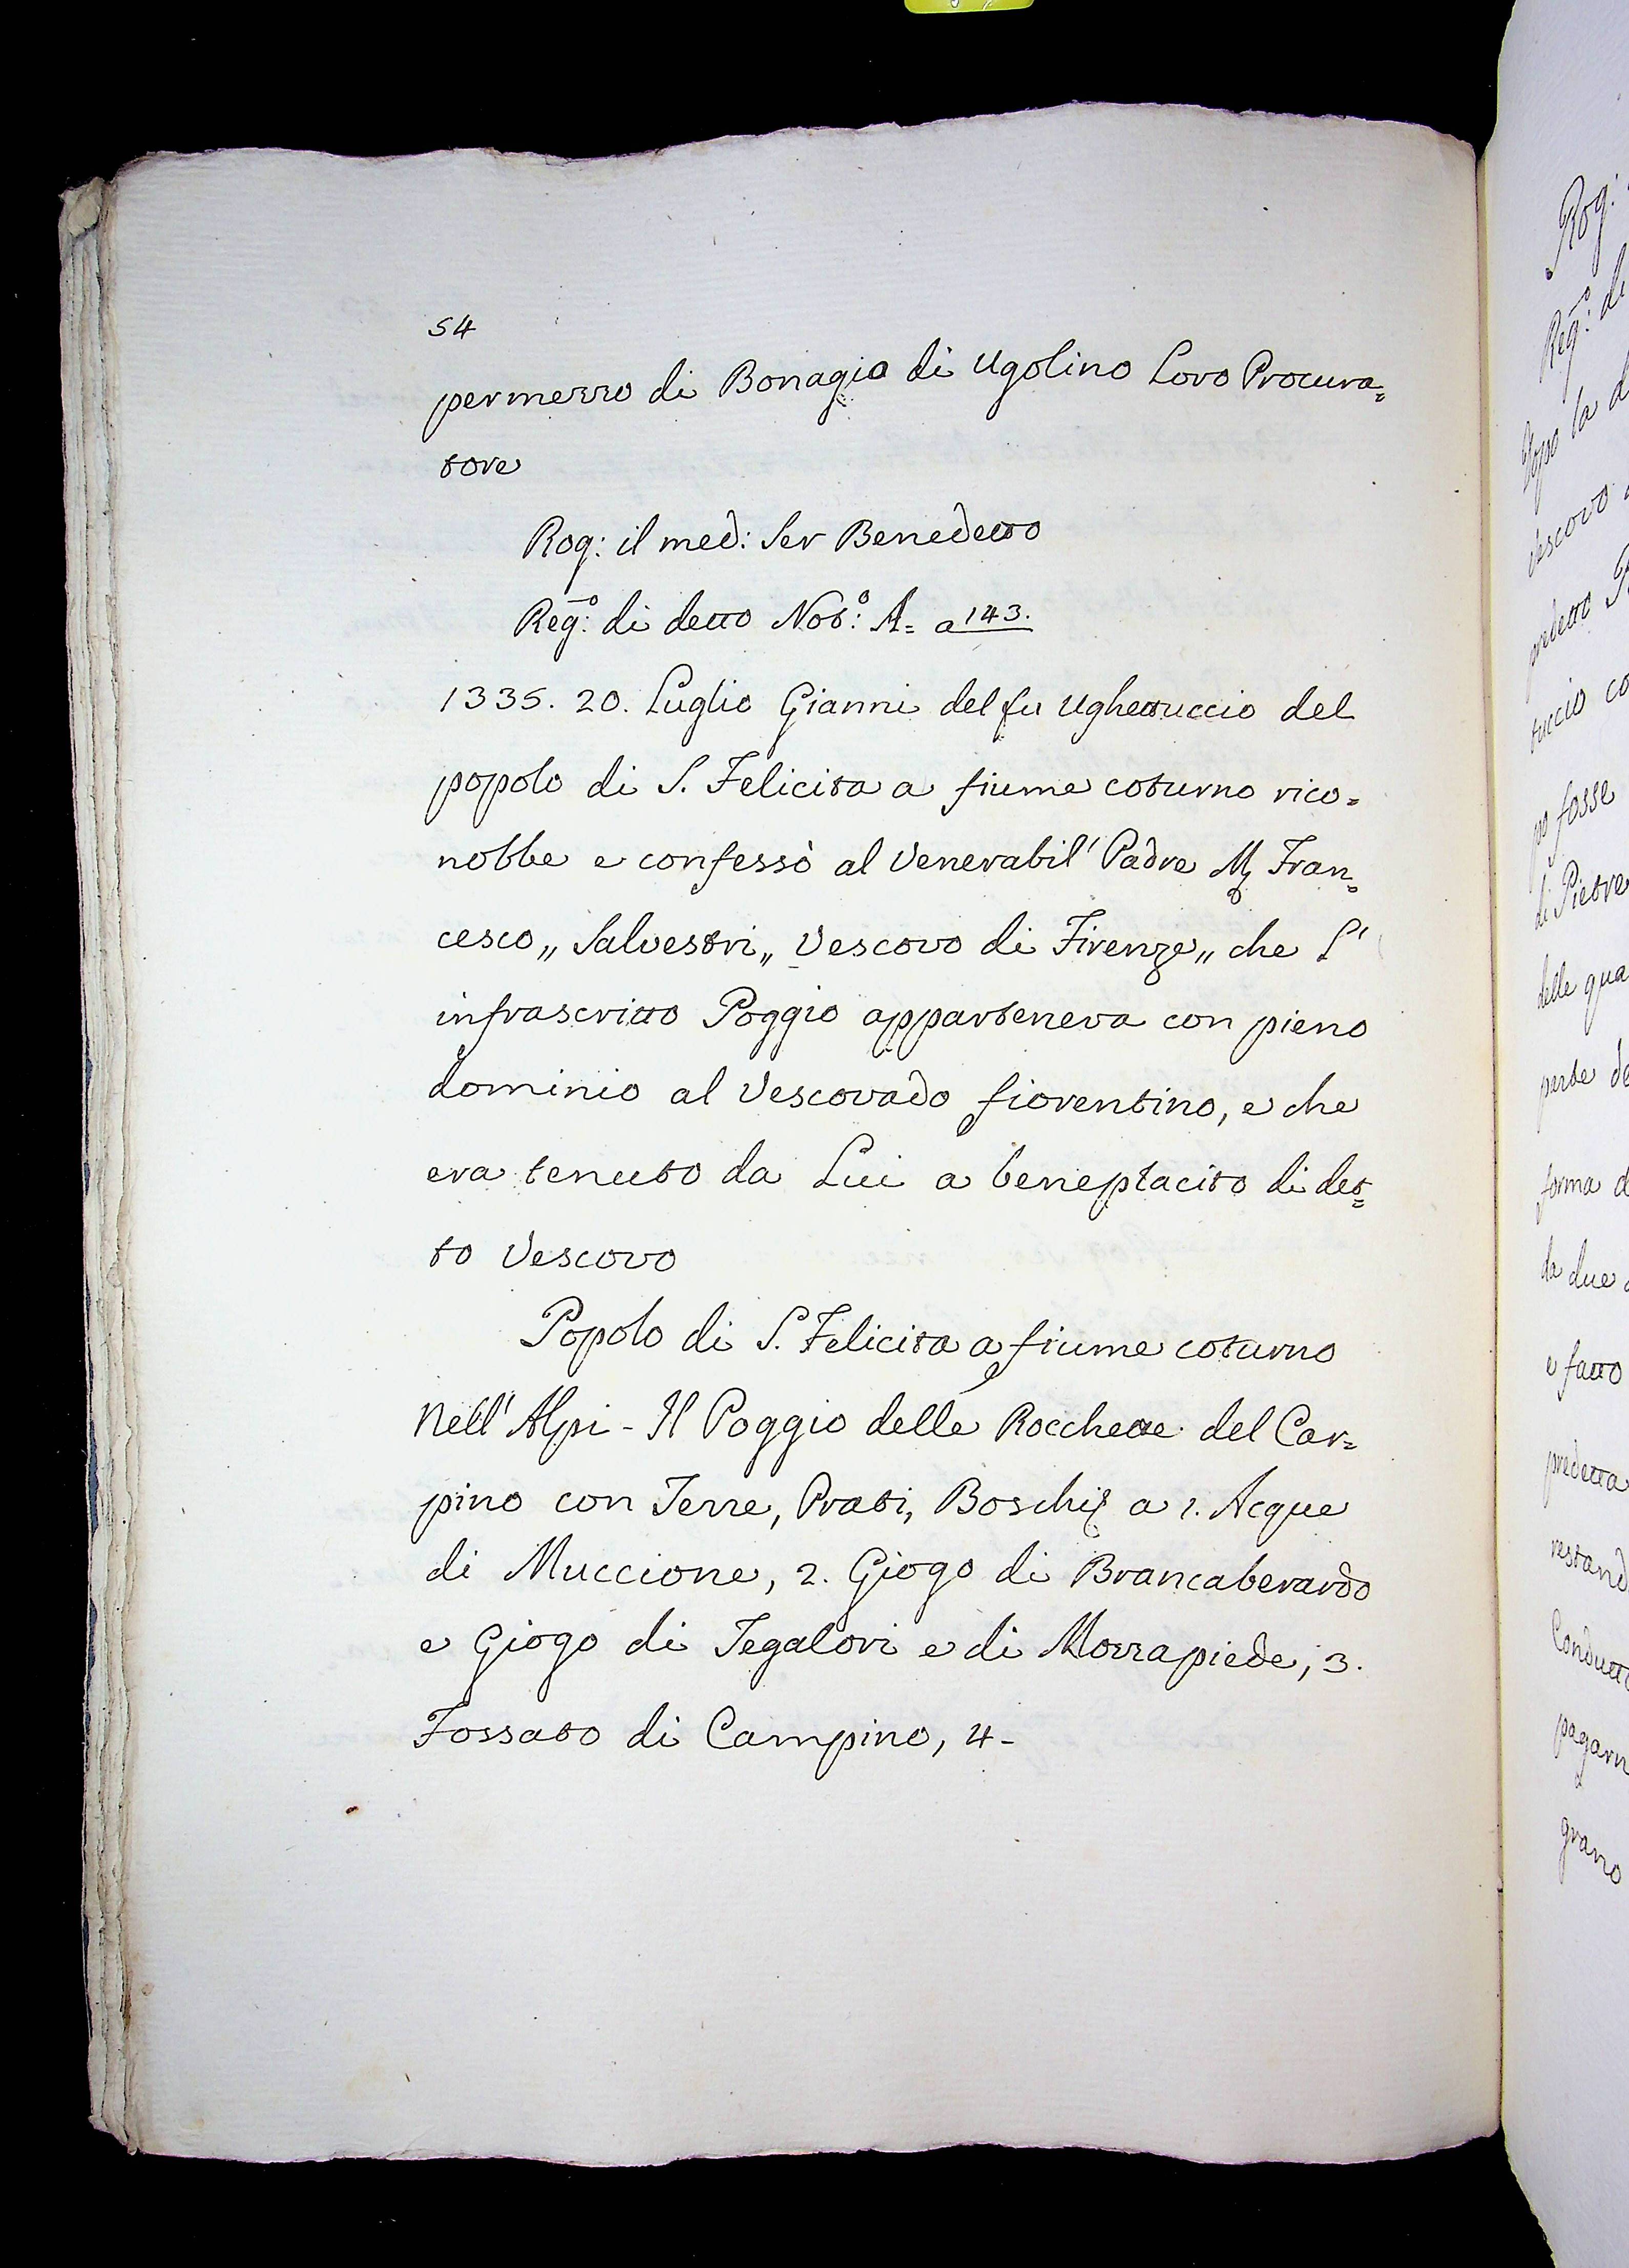 54
permezzo di Bonagia di Ugolino Loro Procura=
tore
Rog: il med: Ser Benedetto
Reg:o di detto Not:o A= a 143.
1335. 20. Luglio Gianni del fu Ughettuccio del
popolo di S. Felicita a fiume coturno rico=
nobbe e confessò al Venerabil' Padre M Fran=
cesco,, Salvestri,, Vescovo di Firenze,, che l'
infrascritto Poggio apparteneva con pieno
dominio al Vescovado fiorentino, e che
era tenuto da Lui a beneplacito di det=
to Vescovo
Popolo di S. Felicita a fiume coturno
Nell' Alpi - Il Poggio delle Rocchette del Car=
pino con Terre, Prati, Boschi a 1. Acque
di Muccione, 2. Giogo di Brancaberardo
e Giogo di Tegalori e di Mozzapiede, 3.
Fossato di Campino, 4-
Rog:
Reg:o di
Dopo la d
Vescovo
predetto
tuccio co
po fosse
di Pietre
delle qua
parte de
forma d
da due
e fatto
predetta
restand
Condutto
pagarn
grano